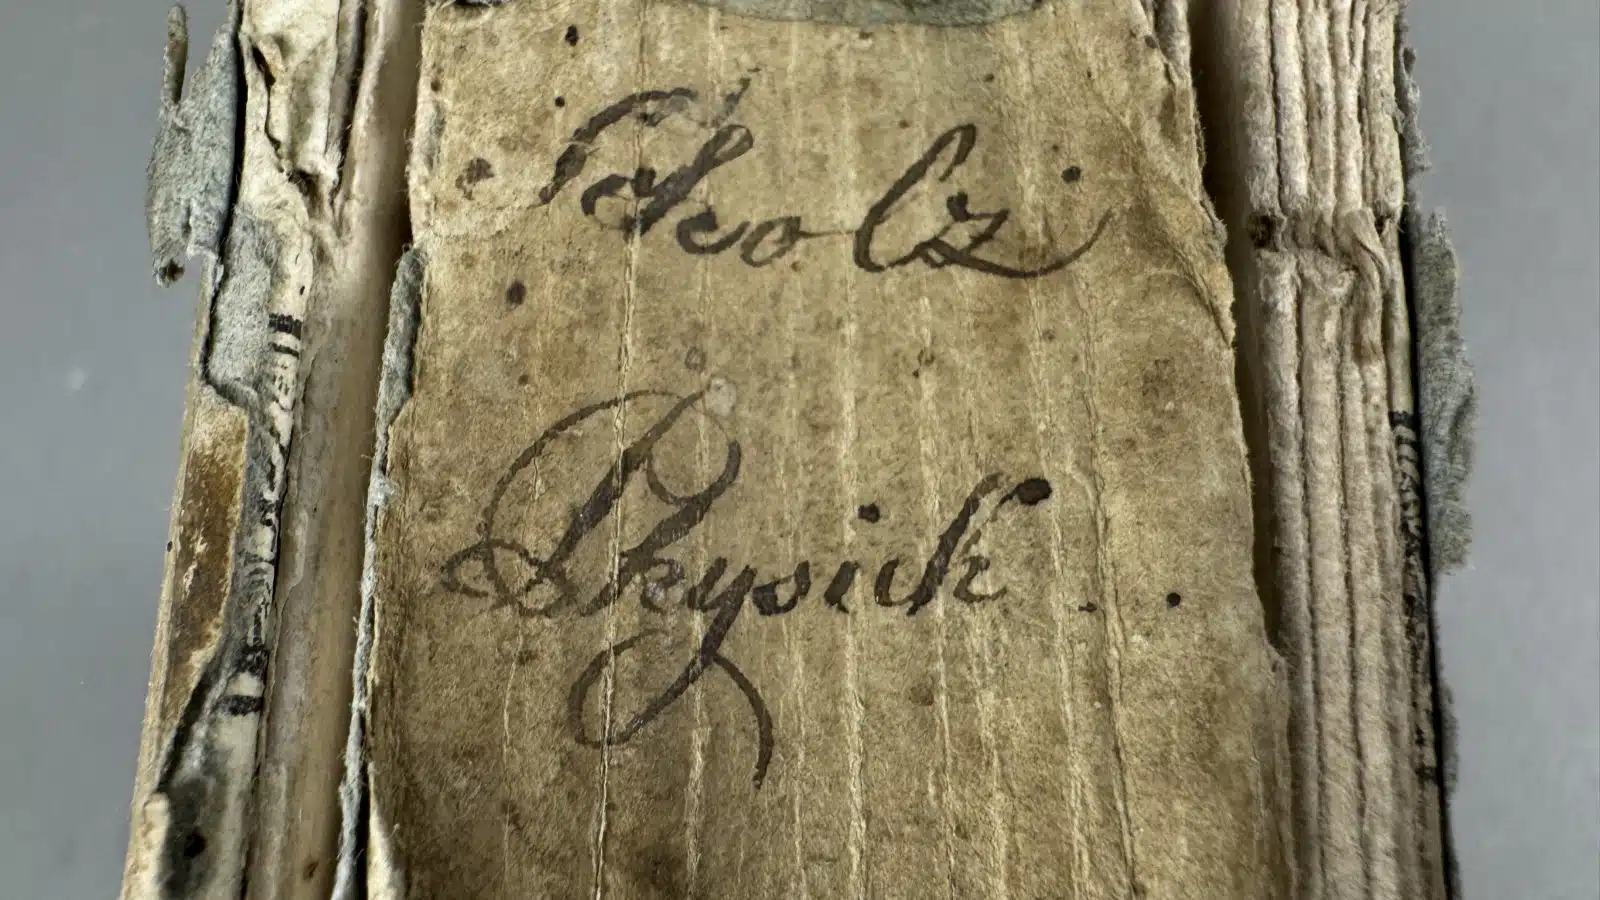 Scholz
Physick